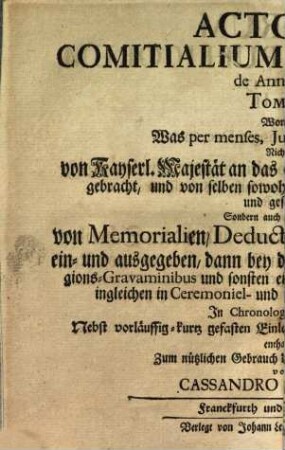 ACTO
COMITIALIUM
de Ann
TOM
Wor
Was per menses, Ju
Nich
von Kayserl. Majestät an das
gebracht, und von selben sowoh
und ges
Sondern auch
von Memorialien, Deduct
ein- und ausgegeben, dann bey d
gions-Gravaminibus und sonsten e
ingleichen in Ceremoniel- und
In Chronolog
Nebst vorläuffig-kurtz gefasten Einle
entha
Zum nützlichen Gebrauch
vo
CASSANDRO
Franckfurth und
Verlegt von Johann Le